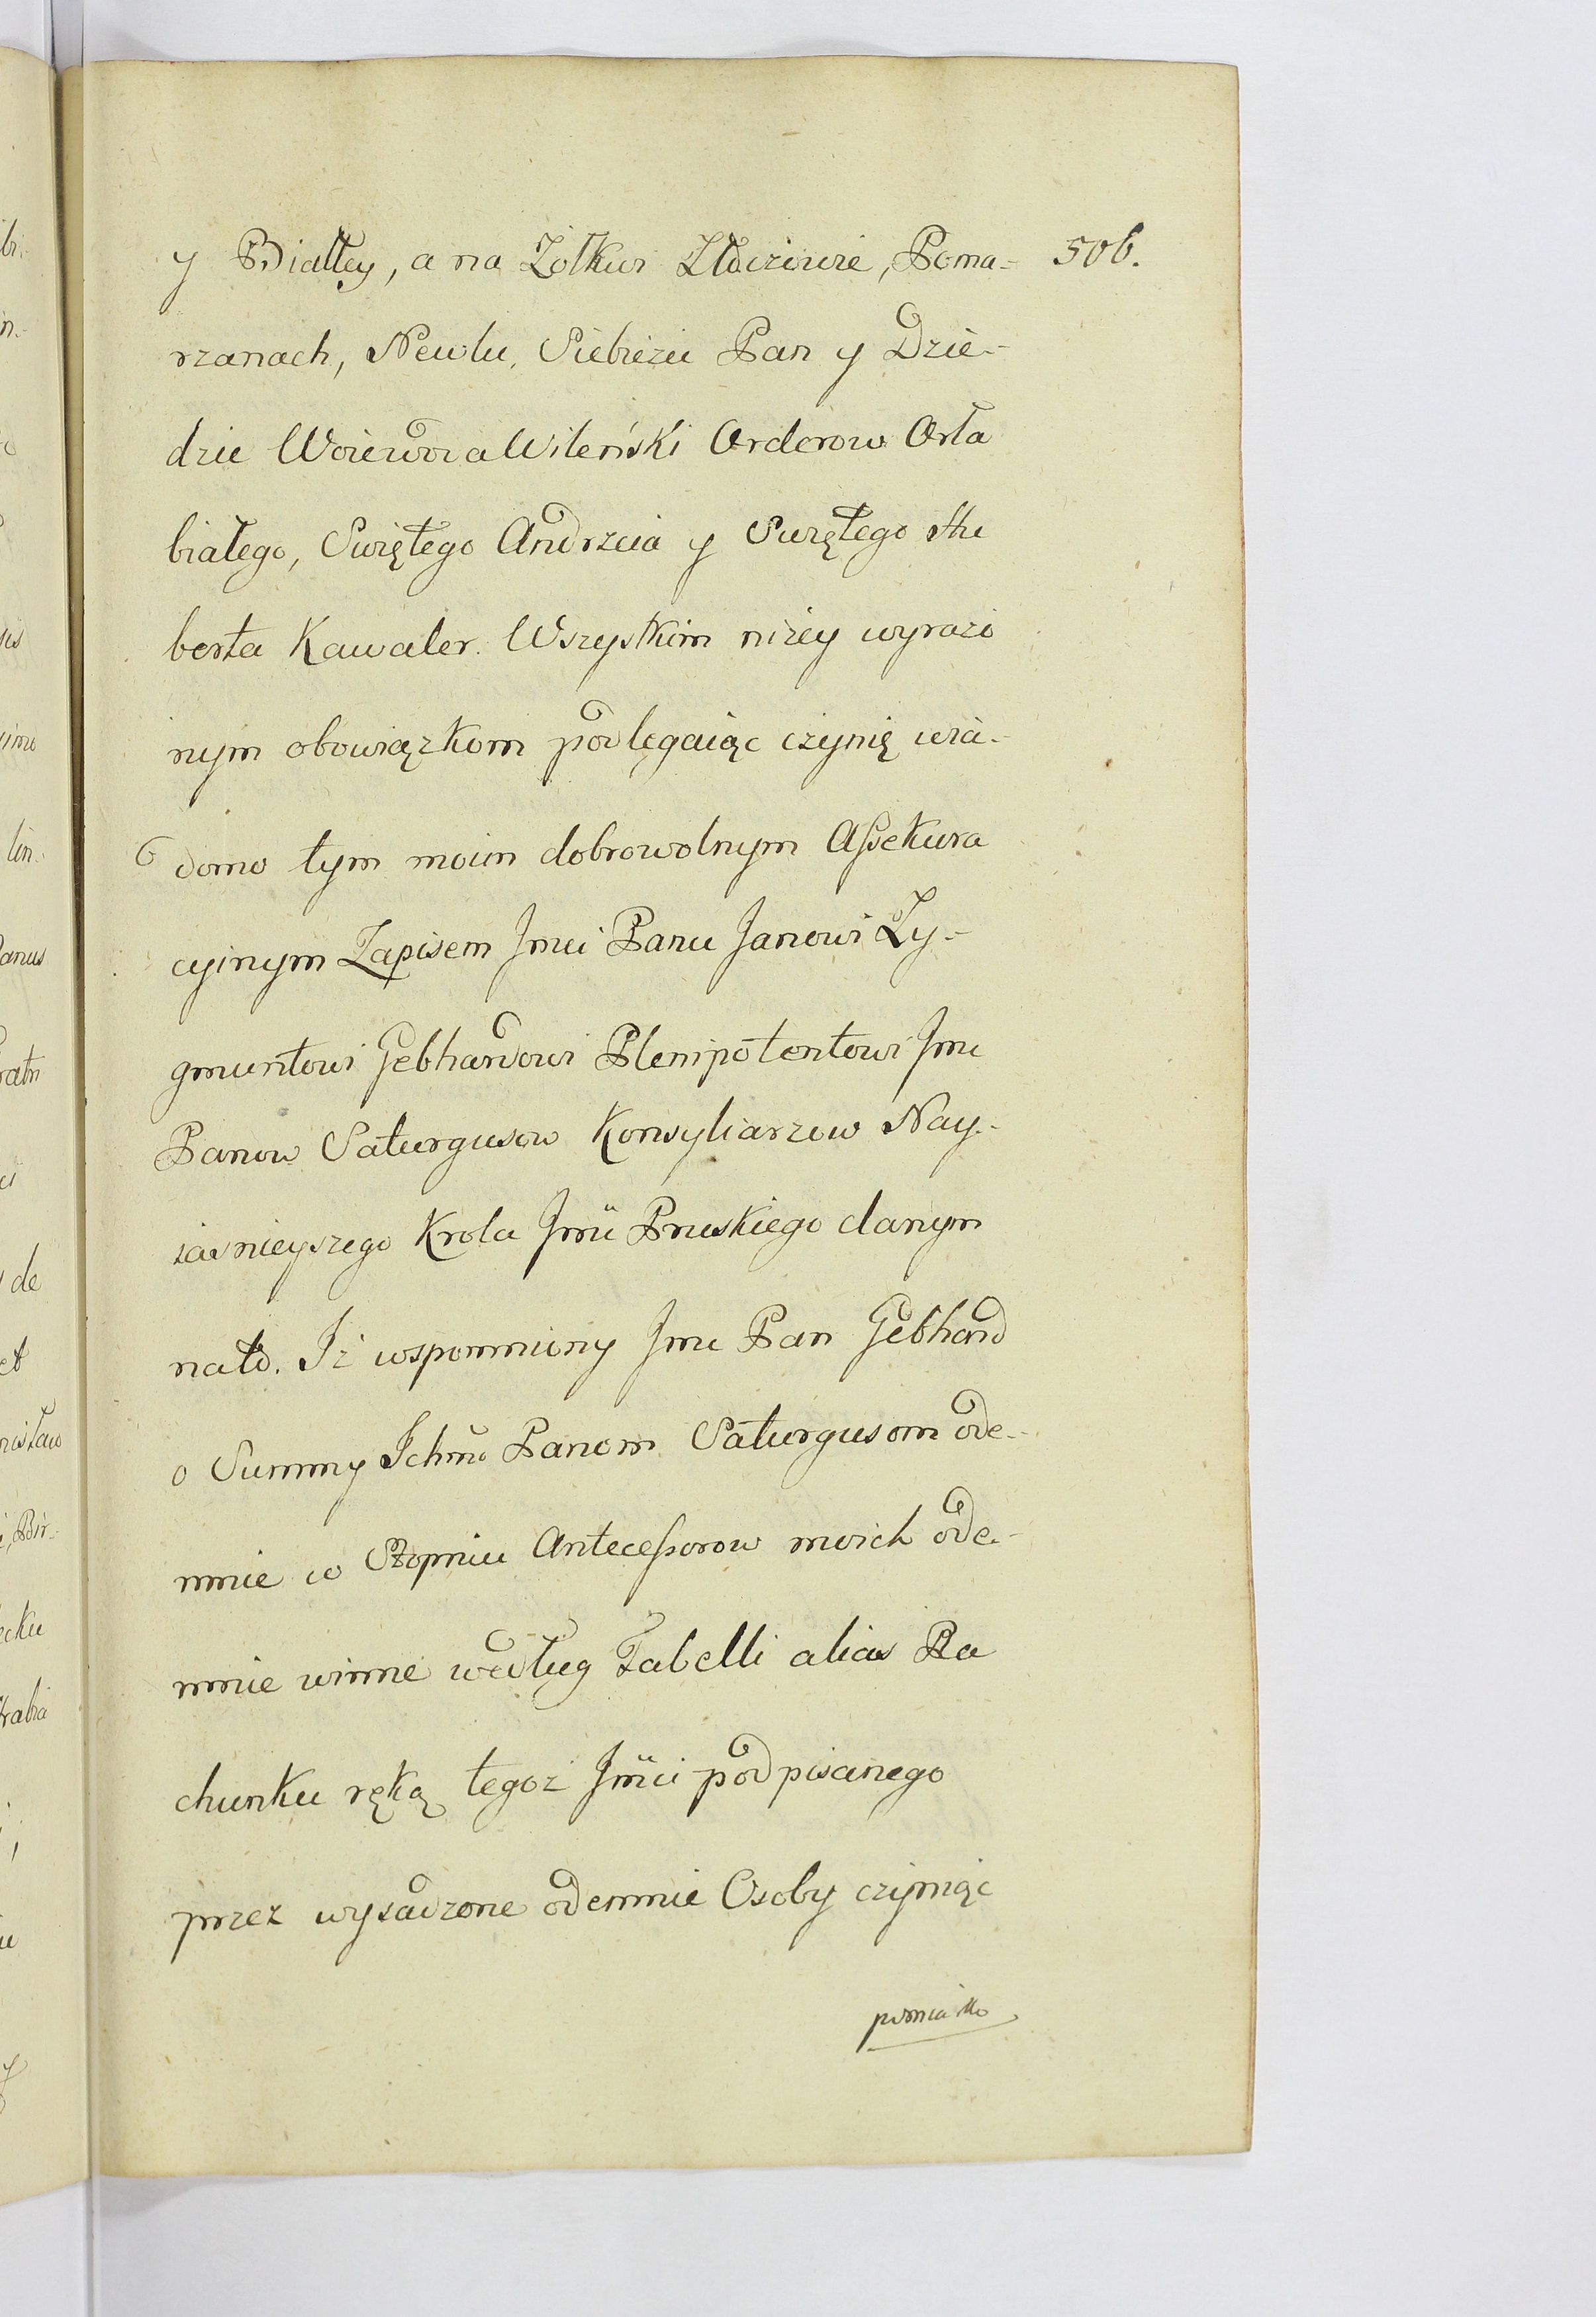 y Białłey, a na Żółkwi Złoczowie, Poma- 506.
rzanach, Newlu, Siebieżu Pan y Dzie-
dzic Woiewoda Wileński Orderow Orła
białego, Swiętego Andrzeia y Swiętego Hu
berta Kawaler. Wszystkim niżey wyrażo
nym obowiązkom podlegaiąc czynię wia-
domo tym moim dobrowolnym Assekura
cyinym Zapisem Jmci Panu Janowi Zy-
gmuntowi Gebhardowi Plenipotentowi Jmc
Panow Saturgusow Konsyliarzow Nay-
iasnieyszego Krola Jmći Pruskiego danym
na to. Iż wspomniony Jmc Pan Gebhard
o Summy Ichmo Panom Saturgusom ode-
mnie w Stopniu Antecessorow moich ode-
mnie winne według Tabelli alias Ra
chunku ręką tegoz Jmći podpisanego
przez wysadzone odemnie Osoby czyniąc